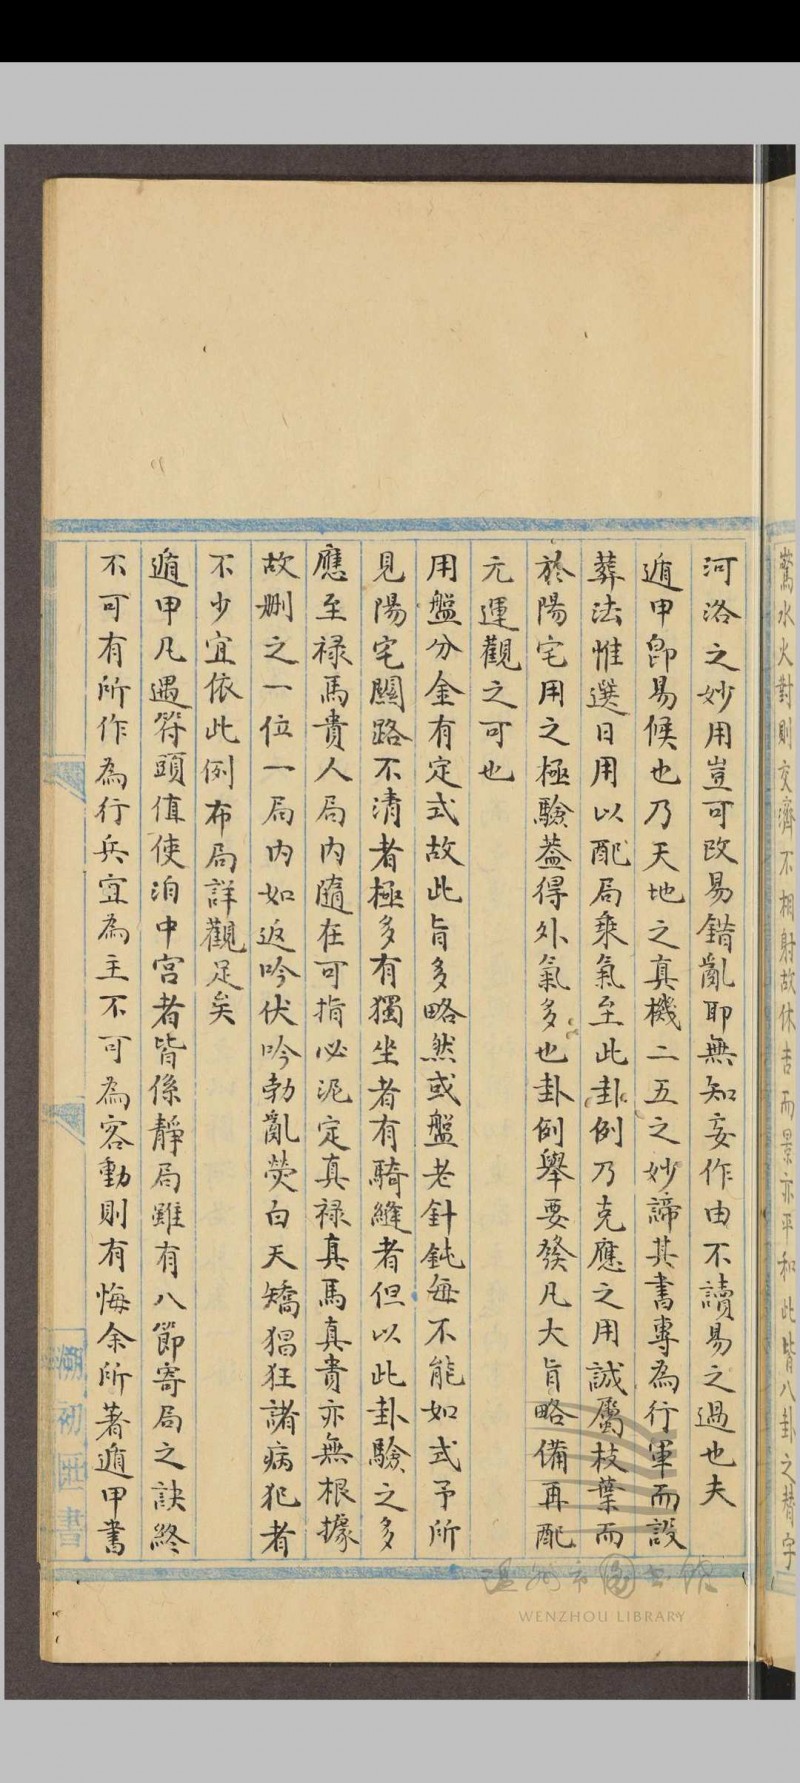 驚水火對則交濟不相射故休吉而景亦平和此皆八卦之替字
河洛之妙用豈可改易錯亂耶無知妄作由不讀易之過也夫
遁甲即易候也乃天地之真機二五之妙諦其書專為行軍而設
葬法惟選日用以配局乘氣至此卦例乃克應之用誠屬枝葉而
於陽宅用之極驗葢得外氣多也卦例舉要發凡大旨略備再配
元運觀之可也
用盤分金有定式故此旨多略然或盤老針鈍每不能如式予所
見陽宅闗路不清者極多有獨坐者有騎縫者但以此卦驗之多
應至祿馬貴人局內隨在可指必泥定真祿真馬真貴亦無根據
故删之一位一局內如返吟伏吟勃亂熒白天矯猖狂諸病犯者
不少宜依此例布局詳觀足矣
遁甲凡遇符頭值使泊中宮者皆係靜局雖有八節寄局之訣終
不可有所作為行兵宜為主不可為客動則有悔余所著遁甲書
溯初匭書
溫州市圖書館
WENZHOU LIBRARY